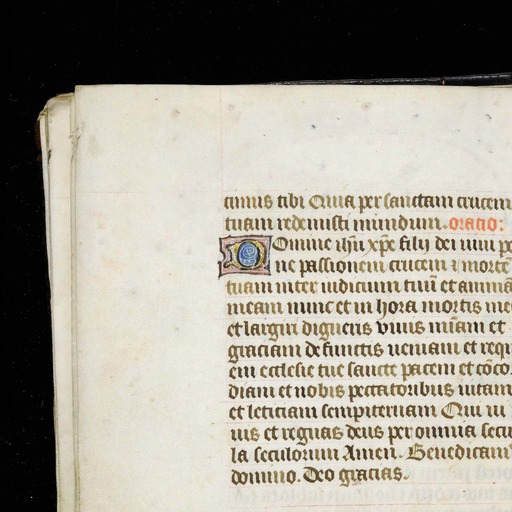 cimus tibi Quia per sanctam crucem
tuam redemisti mundum. oratio:
Domine ihū xp̄e fili dei uiui po
ne passionem crucem ⁊ mortē
tuam inter iudicium tuū et animā
meam nunc et in hora mortis me
et largiri digneris viuis m̄iam et
graciam defunctis ueniam et requi
em ecclesie tue sancte pacem et cōco
diam et nobis peccatoribus uitam
et leticiam sempiternam Qui ui
uis et regnas deus per omnia secu
la seculorum Amen. Benedicam
domino. Deo gracias.